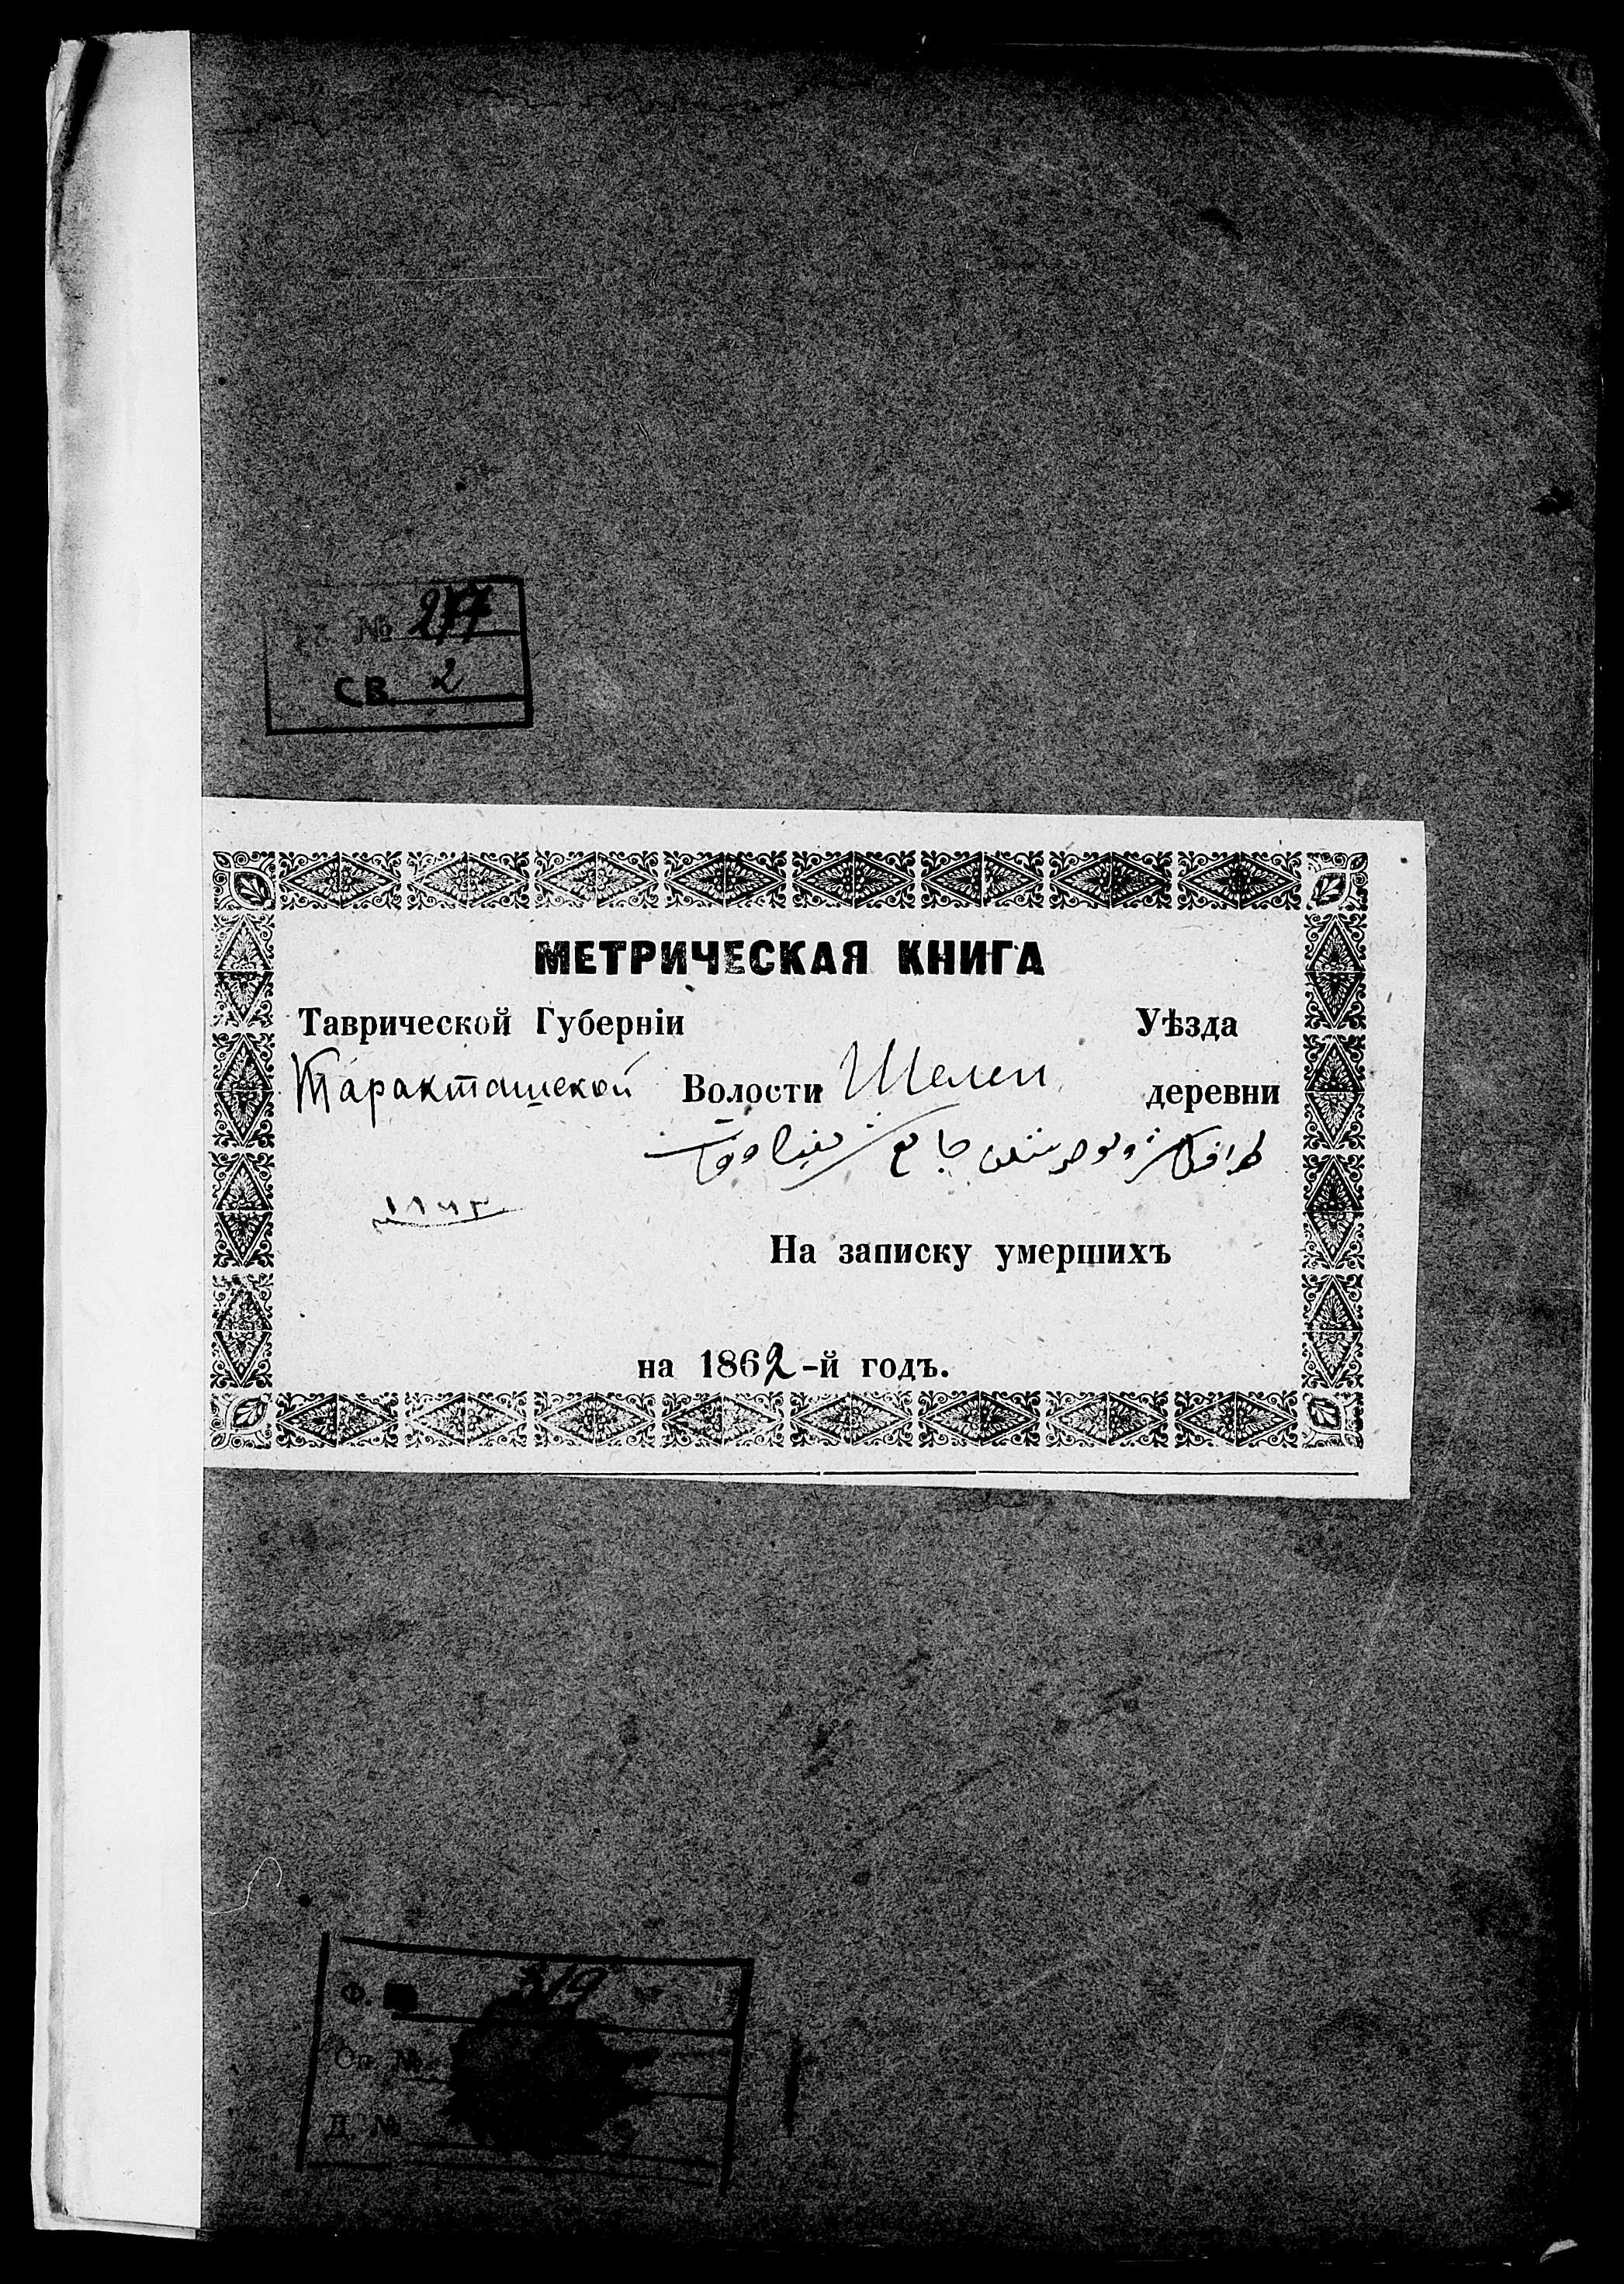 № 277
СВ. 2
МЕТРИЧЕСКАЯ КНИГА
Таврической Губерніи Уѣзда
Таракташской Волости Шелен деревни
١٨٦٢
На записку умершихъ
на 1862-й годъ.
Ф. 319
Оп. №
Д. №